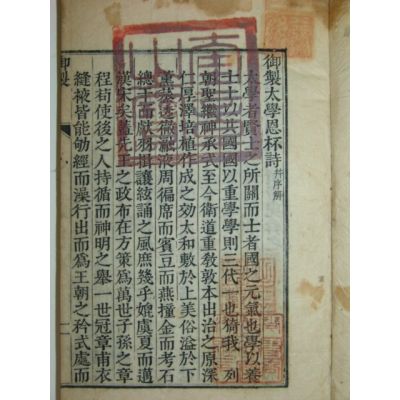 御製太學恩杯詩 幷序
太學者賢士之所關而士者國之元氣也學以養
士士以共國國以重學學則三代一也猗我 列
朝聖繼神承式至今衛道重敎敦本出治之原深
仁厚澤培植作成之効太和敷於上美俗溢於下
薰蒸透徹融液周徧席而賓豆而燕撞金而考石
總干而獻羽揖讓絃誦之風庶幾乎媲虞夏而邁
漢宋矣藉先王之政布在方策爲萬世子孫之章
程苟使後之人持循而神明之擧一世冠章甫衣
縫掖皆能劬經而澡行出而爲王朝之矜式處而
御製